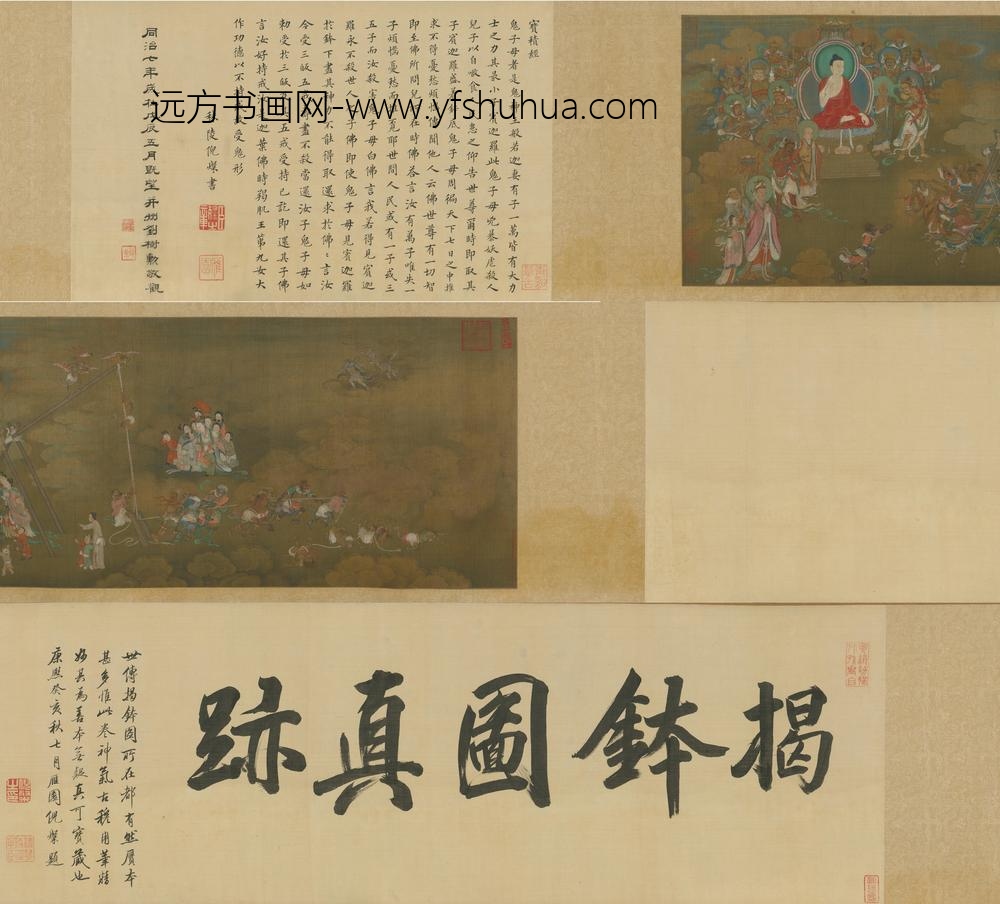 寶積經
鬼子母者是鬼神王般若迦妻有子一萬皆有大力
士之力其最小子賓迦羅此鬼子母兇暴妖虐殺人
兒子以自噉食
子賓迦羅盛著鉢底鬼子母周徧天下七日之中推
求不得憂愁煩惱
即至佛所問兒所在時佛答言汝有萬子唯失一
子何煩惱憂愁而推覓耶世間人民或有一子或三
五子而汝殺害鬼子母白佛言我若得見賓迦
羅永不殺世人之子佛即使鬼子母見賓迦羅
在於鉢下盡其神力不能得取還求於佛佛言汝
今受三皈五戒盡形不殺當還汝子鬼子母如
勅受於三皈及以五戒受持已訖即還其子佛
言汝好持戒汝是迦葉佛時羯肌王第九女大
作功德以不持戒故受鬼形
倪燦書
同治七年歲在戊辰五月既望并州劉樹勳敬觀
远方书画网-www.yfshuhua.com
揭鉢圖真跡
世傳揭鉢圖所在都有然贋本
甚多惟此卷神氣古穆用筆精
妙其為善本無疑真可寶藏也
康熙癸亥秋七月雁園倪燦題